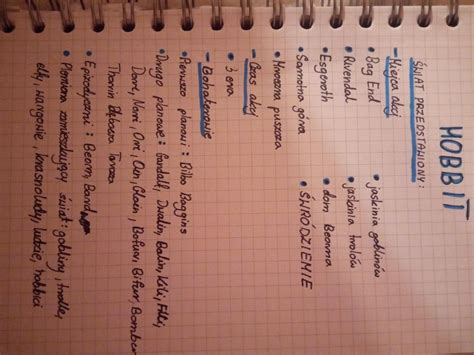 HOBBIT
ŚWIAT PRZEDSTAWIONY:
– Miejsca akcji
• Bag End
• jaskinia goblinów
• Rivendal
• jaskinia trolów
• Samotna góra
• dom Beorna
• Esgaroth
• ŚRÓDZIEMIE
• Mroczna puszcza
– Czas akcji
• 3 era
– Bohaterowie
• Pierwszo planowi: Bilbo Baggins
• Drugo planowe: Gandalf, Dwalin, Balin, Kili, Fili,
Dori, Nori, Ori, Oin, Gloin, Bofur, Bifur, Bombur
Thorin Dębowa Tarcza
• Epizodyczni: Beorn, Bard
• Plemiona zamieszkujący świat: gobliny, trolle,
elfy, wargowie, krasnoludy, ludzie, hobbici